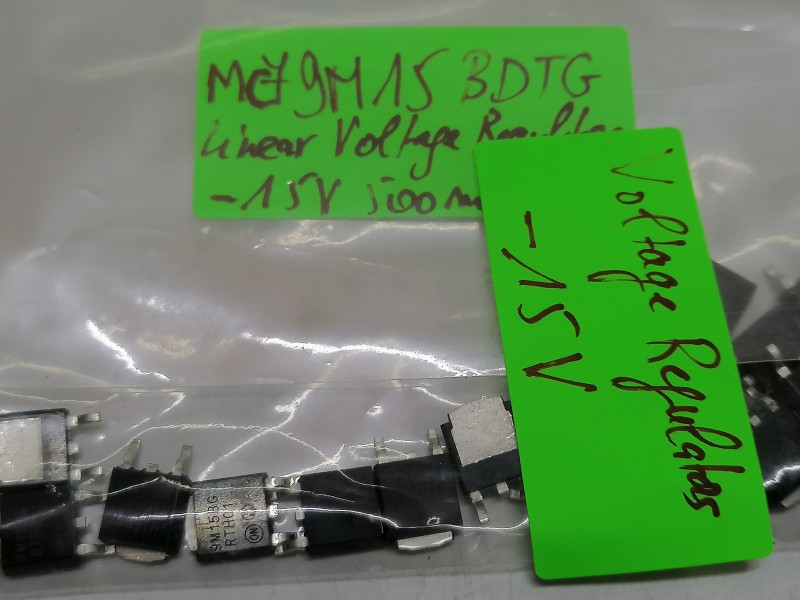 MC79M15 BDTG
Linear Voltage Regulator
-15V 500m
Voltage Regulators
-15V
9M15BG
RTH01
ON